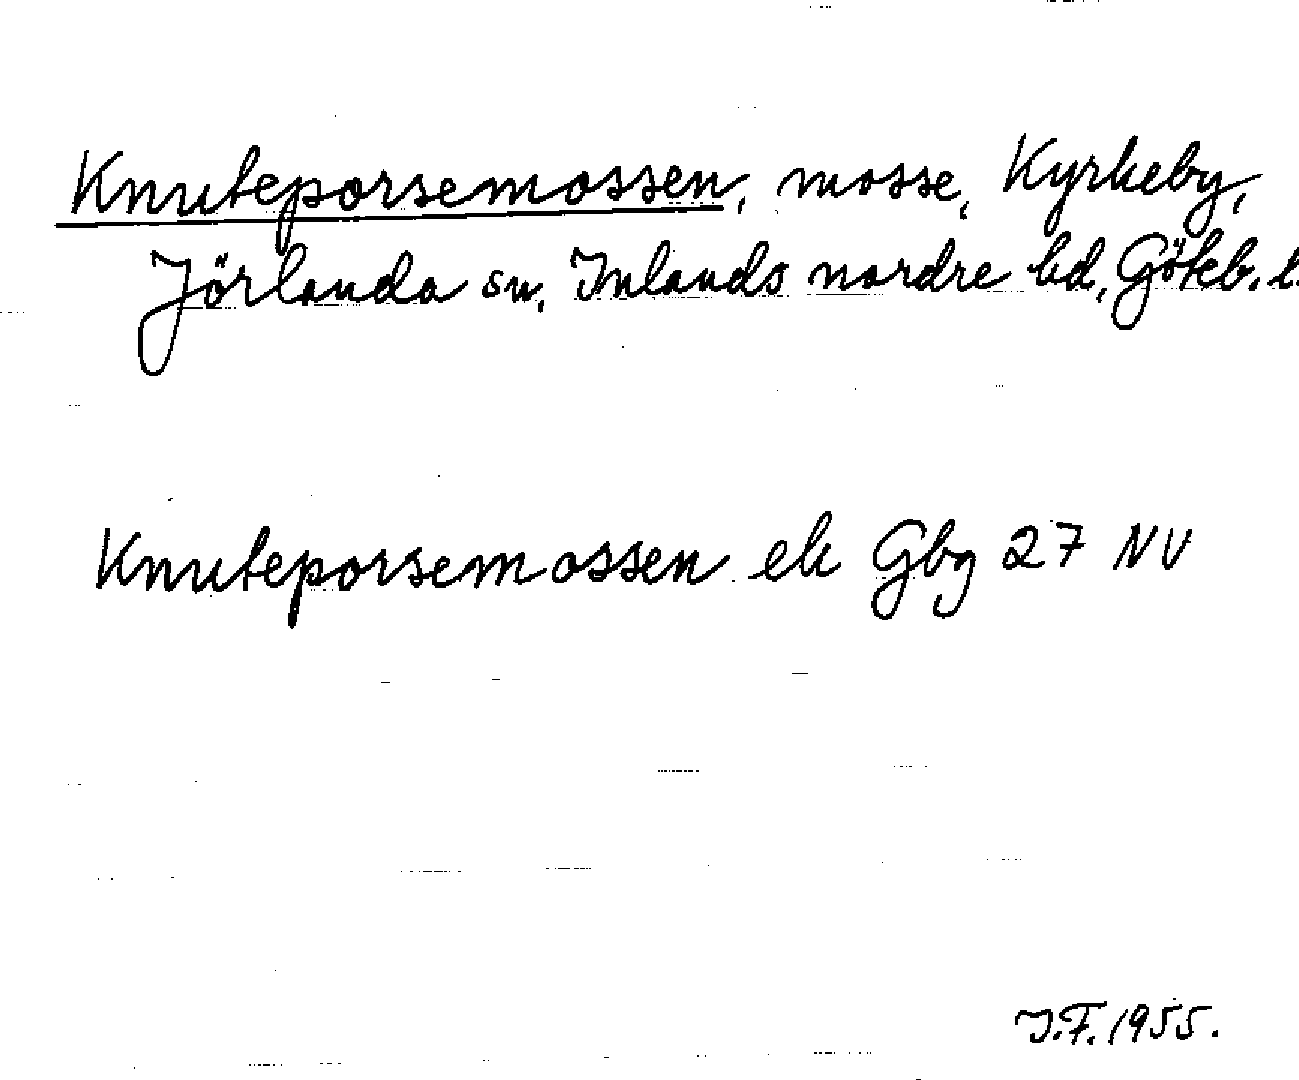 Knuteporsemossen, mosse, Kyrkeby,
Jörlanda sn, Inlands nordre hd, Göteb. l.
Knuteporsemossen ek Gbg 27 NV
J.F. 1955.